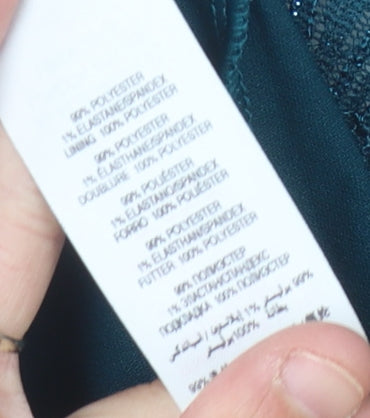 99% POLYESTER
1% ELASTANE/SPANDEX
LINING 100% POLYESTER
99% POLYESTER
1% ÉLASTHANE/SPANDEX
DOUBLURE 100% POLYESTER
99% POLIÉSTER
1% ELASTANO/SPANDEX
FORRO 100% POLIÉSTER
99% POLYESTER
1% ELASTHAN/SPANDEX
FUTTER 100% POLYESTER
99% ПОЛИЭСТЕР
1% ЭЛАСТАН/СПАНДЕКС
ПОДКЛАДКА 100% ПОЛИЭСТЕР
99% بوليستر 1% إيلاستين / سباندكس
بطانة 100% بوليستر
99%